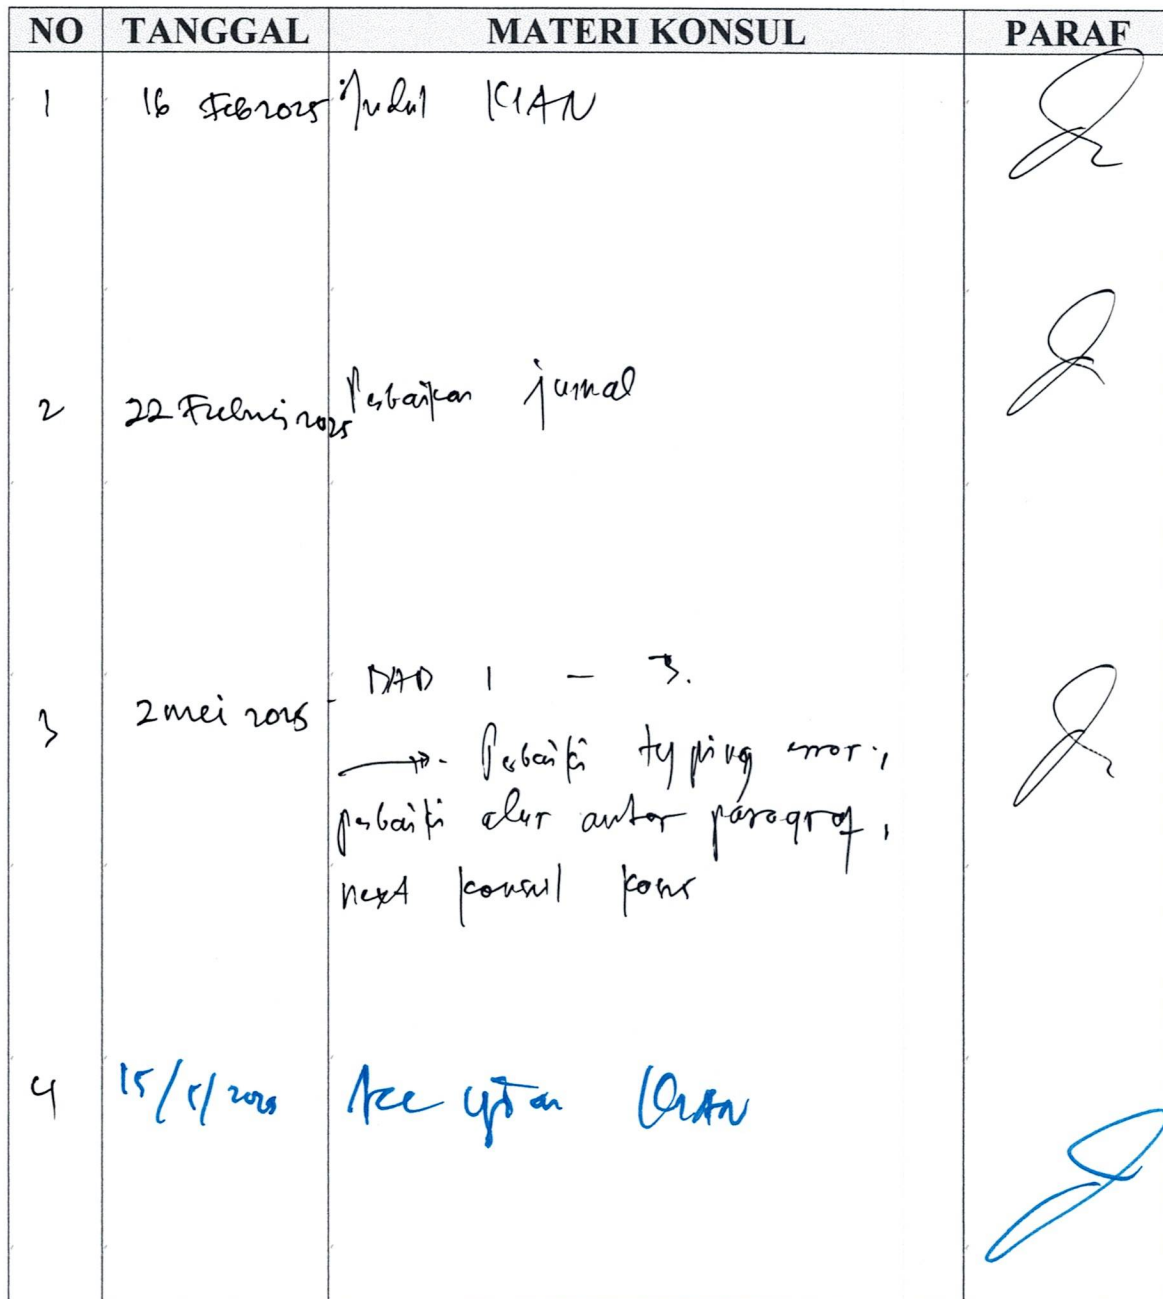 NO TANGGAL MATERI KONSUL PARAF
1 16 Feb 2025 Judul KIAN
2 22 Februari 2025 Perbaikan jurnal
BAB 1 - 3.
3 2 mei 2025
Perbaiki typing error,
perbaiki alur antar paragraf,
next konsul kasus
4 15/5/2025 Acc ujian KIAN